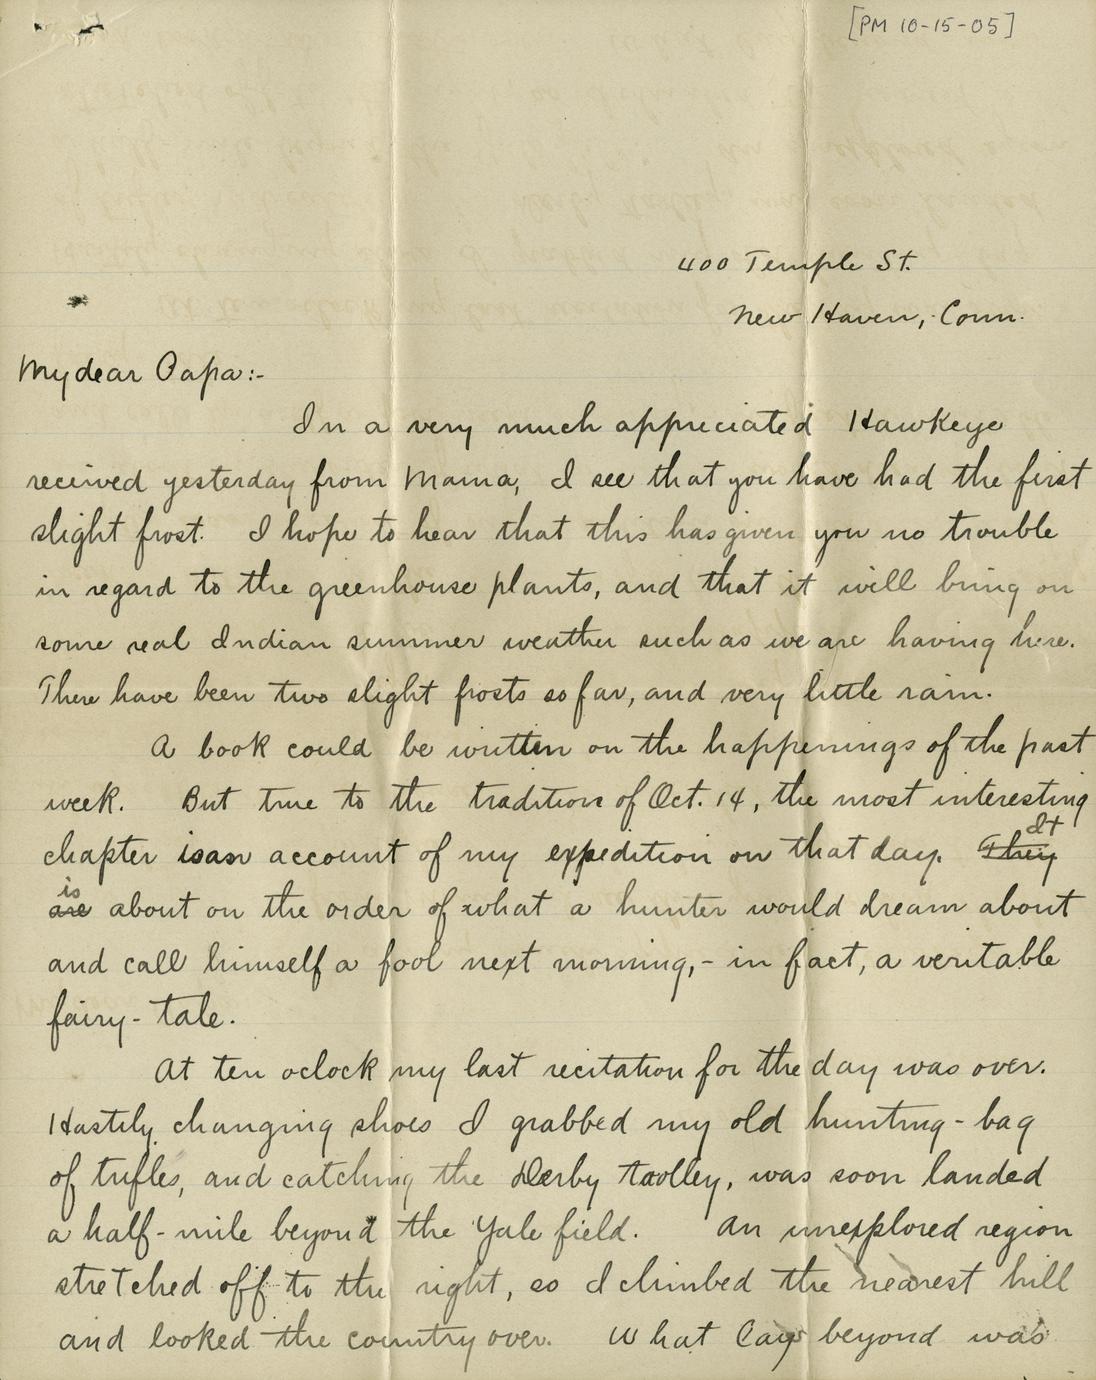 [PM 10-15-05]
400 Temple St.
New Haven, Conn.
My dear Papa:-
In a very much appreciated Hawkeye
received yesterday from Mama, I see that you have had the first
slight frost. I hope to hear that this has given you no trouble
in regard to the greenhouse plants, and that it will bring on
some real Indian summer weather such as we are having here.
There have been two slight frosts so far, and very little rain.
A book could be written on the happenings of the past
week. But true to the tradition of Oct. 14, the most interesting
chapter is an account of my expedition on that day. They It
are is about on the order of what a hunter would dream about
and call himself a fool next morning,- in fact, a veritable
fairy-tale.
At ten oclock my last recitation for the day was over.
Hastily changing shoes I grabbed my old hunting-bag
of trifles, and catching the Derby trolley, was soon landed
a half-mile beyond the Yale field. An unexplored region
stretched off to the right, so I climbed the nearest hill
and looked the country over. What lay beyond was